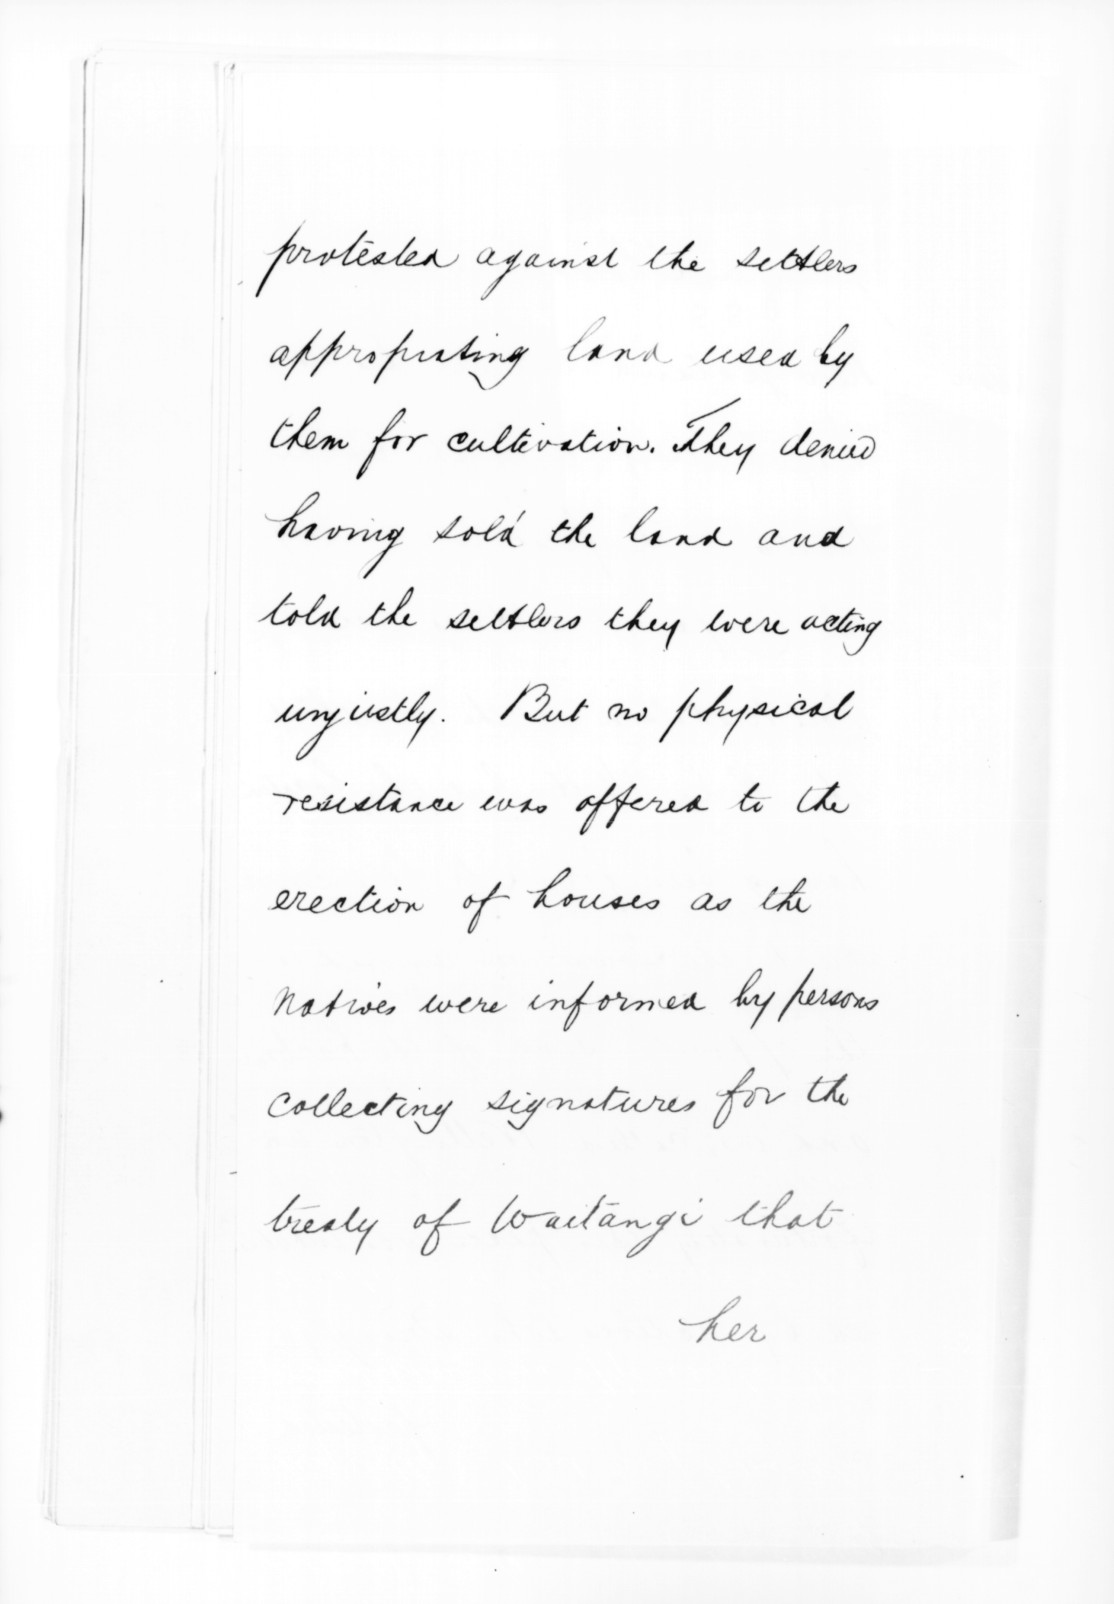 protested against the settlers
appropiating land used by
them for cultivation. They denied
having sold the land and
told the settlers they were acting
unjustly. But no physical
resistance was offered to the
erection of houses as the
natives were informed by persons
collecting signatures for the
treaty of Waitangi that
her